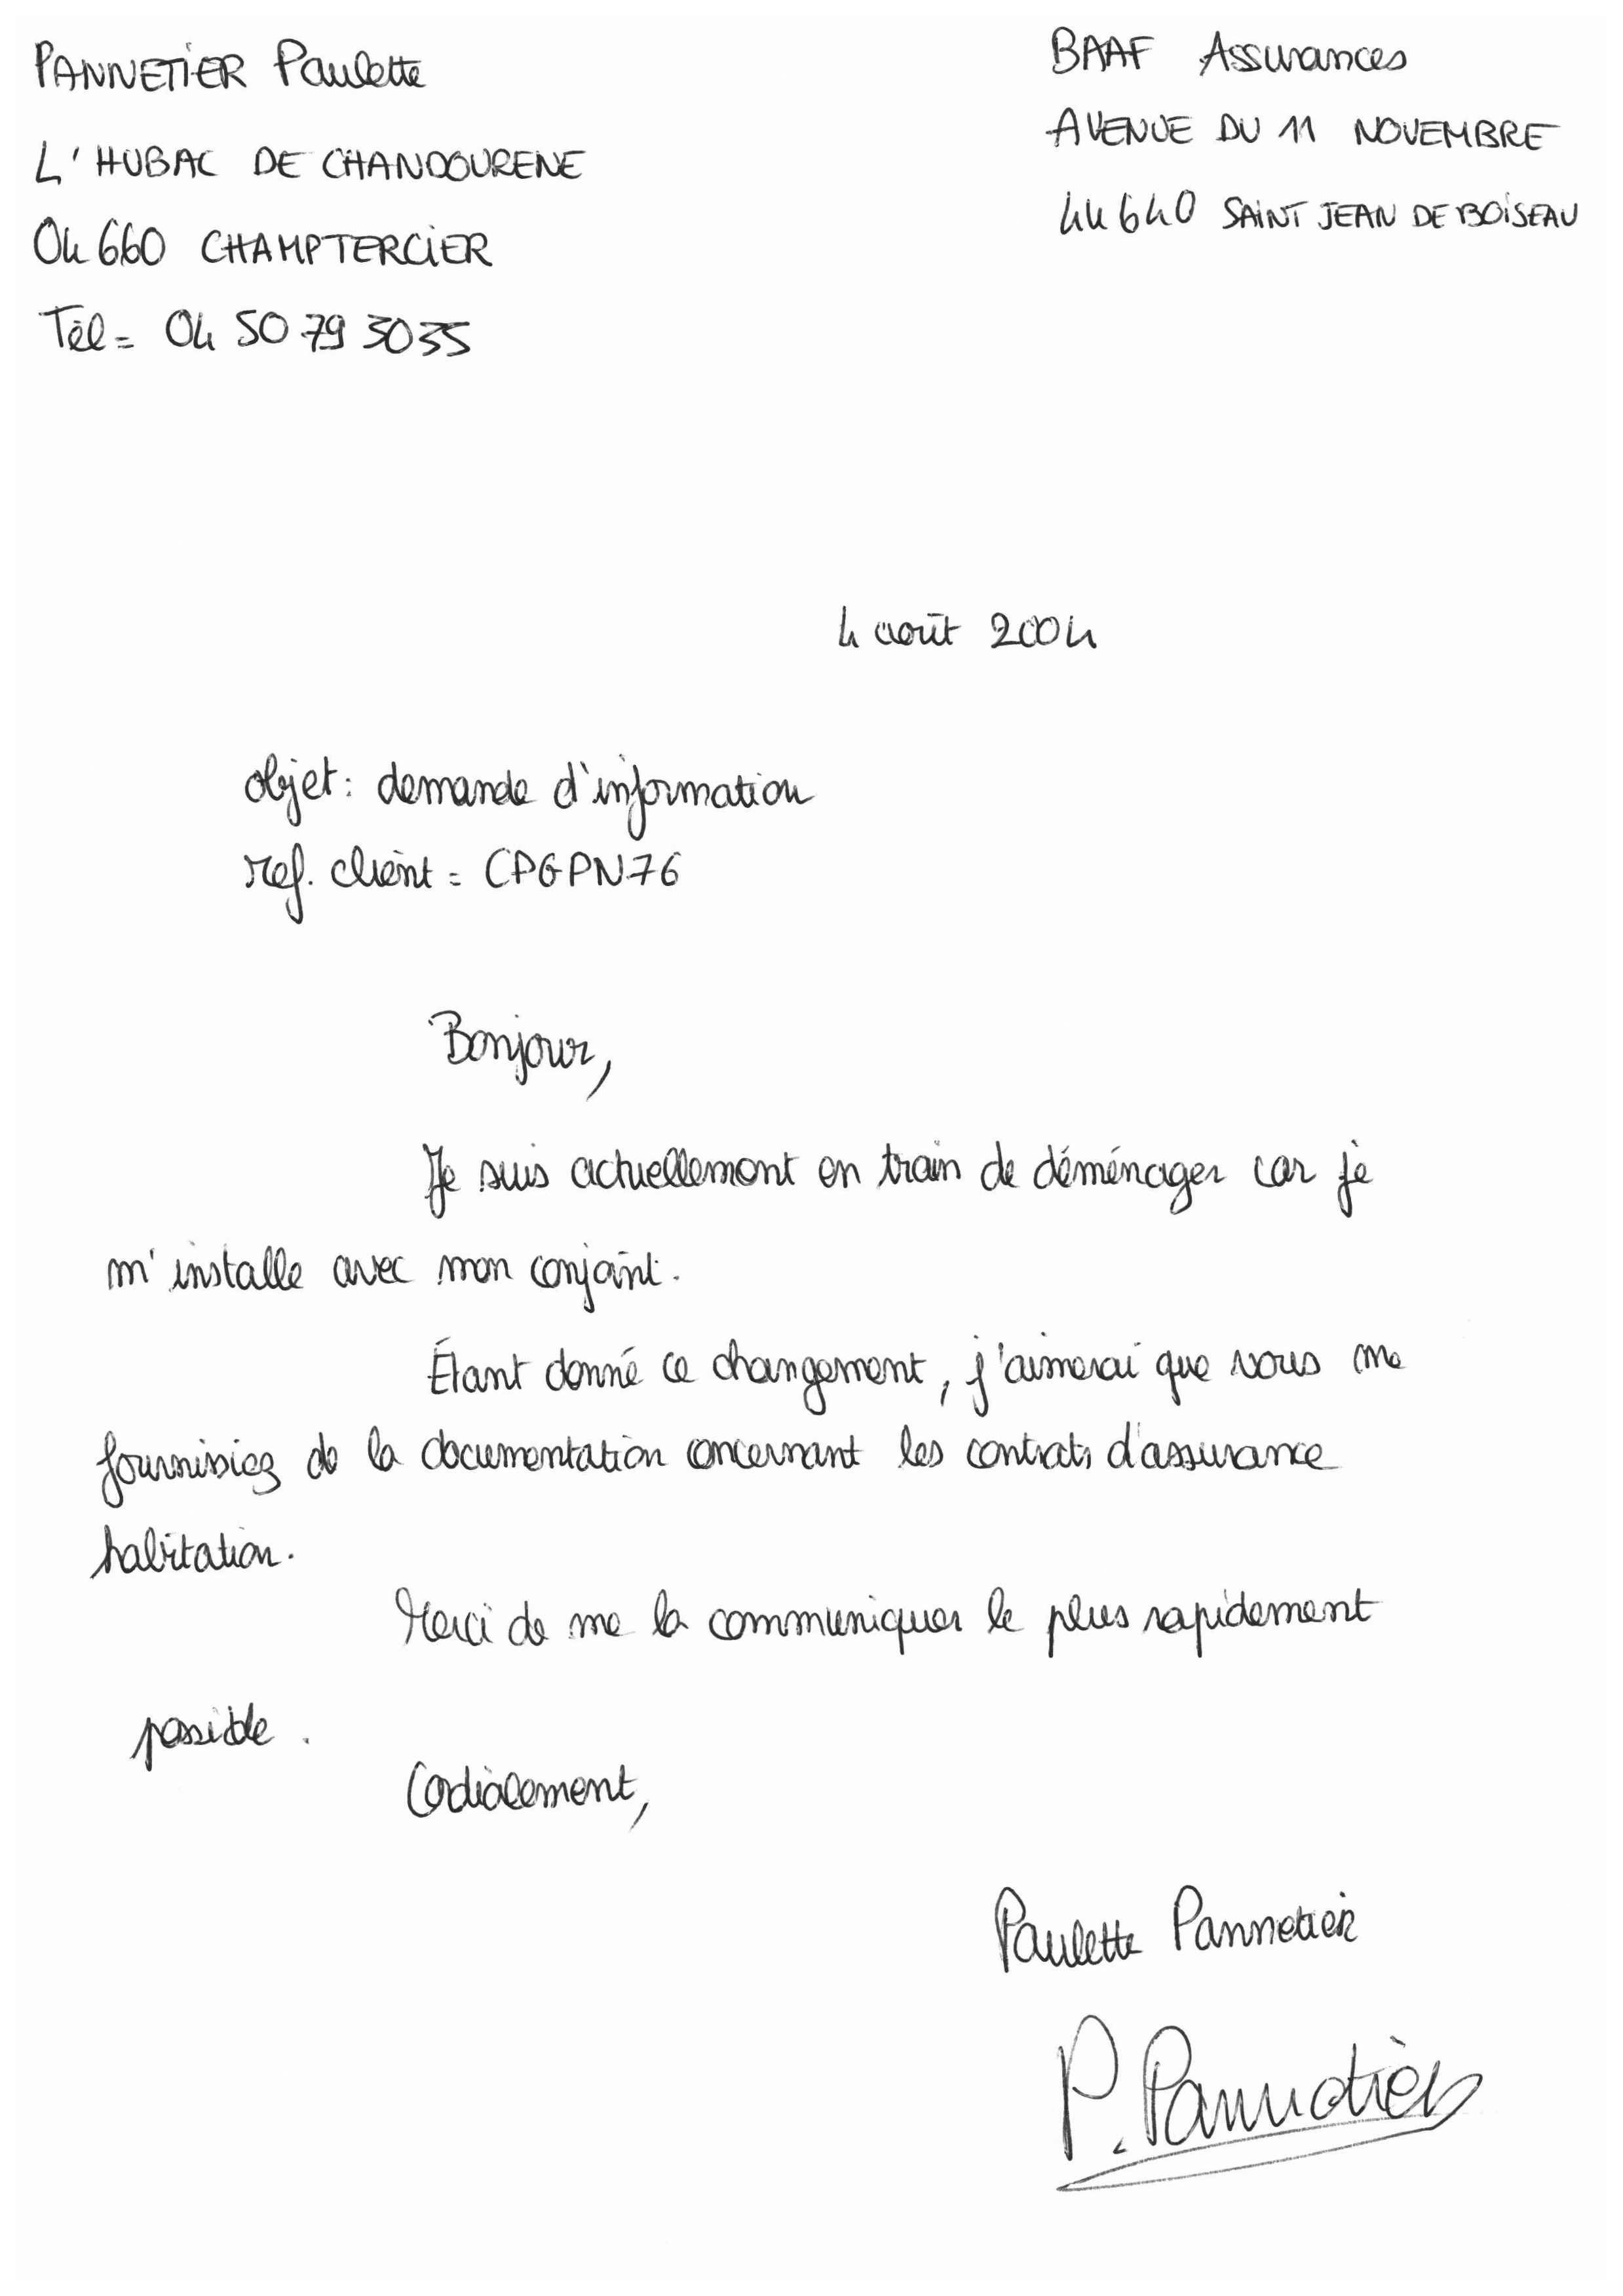 PANNETIER Paulette
L'HUBAC DE CHANDOURENE
04660 CHAMPTERCIER
Tél = 04 50 79 3035
BAAF Assurances
AVENUE DU 11 NOVEMBRE
44640 SAINT JEAN DE BOISEAU
4 août 2004
objet : demande d'information
ref. client = CPGPN76
Bonjour,
Je suis actuellement en train de déménager car je
m'installe avec mon conjoint.
Étant donné ce changement, j'aimerai que vous me
fournissiez de la documentation concernant les contrats d'assurance
habitation.
Merci de me la communiquer le plus rapidement
possible.
Cordialement,
Paulette Pannetier
P. Pannetier